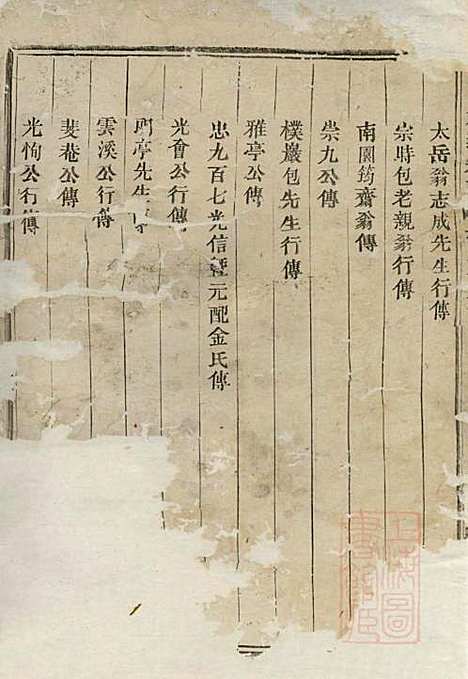 太岳翁志成先生行傳
宗時包老親翁行傳
南園筠齋翁傳
崇九公傳
樸巖包先生行傳
雅亭公傳
忠九百七光信暨元配金氏傳
光會公行傳
亭先生
雲溪公行傳
斐菴公傳
光恂公行傳
上海圖書館臧